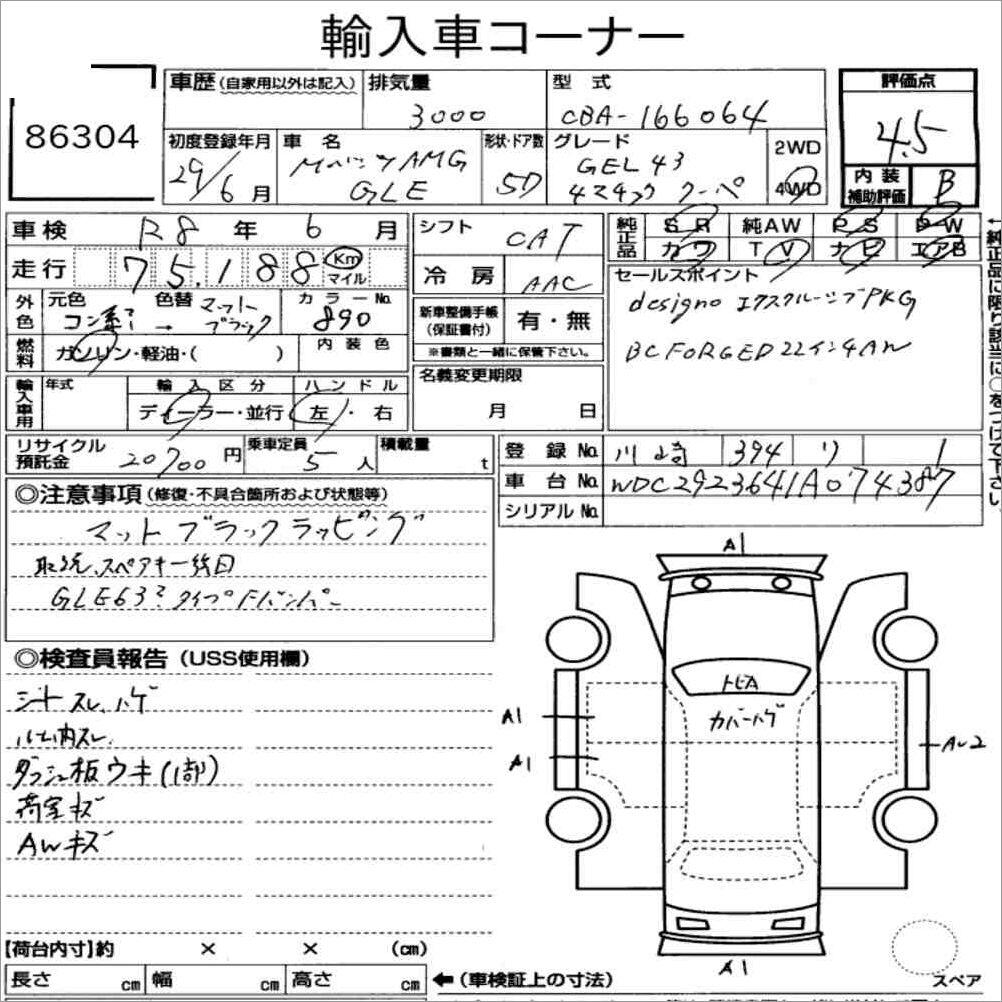 輸入車コーナー
86304
車歴(自家用以外は記入)
排気量
3000
型式
CBA-166064
評価点
4.5
初度登録年月
29/6月
車名
Mベンツ AMG
GLE
形状・ドア数
5D
グレード
GEL 43
4マチック クーペ
2WD
4WD
内装
補助評価
B
車検 R8年 6月
走行 75,188 Km
マイル
シフト CAT
冷房 AAC
純正品
SR 純AW PS PW
カワ TV ナビ エアB
外色
元色
色替 マット
コン系? → ブラック
カラーNo.
890
燃料
ガソリン・軽油・( )
内装色
新車整備手帳
(保証書付)
有・無
※書類と一緒に保管下さい。
セールスポイント
designo エクスクルーシブPKG
BC FORGED 22インチAW
輸入車用
年式
輸入区分
ディーラー・並行
ハンドル
左・右
名義変更期限
月 日
リサイクル
預託金
20700円
乗車定員
5人
積載量
t
登録No. 川崎 394 リ 1
車台No. WDC2923641A074387
シリアルNo.
←純正品に限り該当に○をつけて下さい。
◎注意事項(修復・不具合箇所および状態等)
マットブラックラッピング
取説、スペアキー後日
GLE63?タイプFバンパー
◎検査員報告(USS使用欄)
シートスレ、ハゲ
ルーム内スレ
ダッシュ板ウキ(1部)
荷室キズ
AWキズ
A1
トビA
カバーハゲ
A1
A1
A1
スペア
【荷台内寸】約 × × (cm)
長さ cm 幅 cm 高さ cm ←(車検証上の寸法)